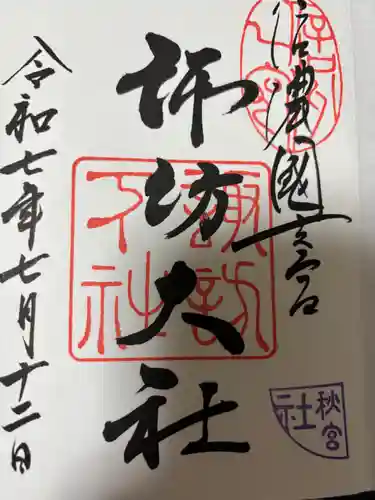 信濃國一之宮
諏訪大社
令和七年七月十二日
諏訪
下社
秋宮
社